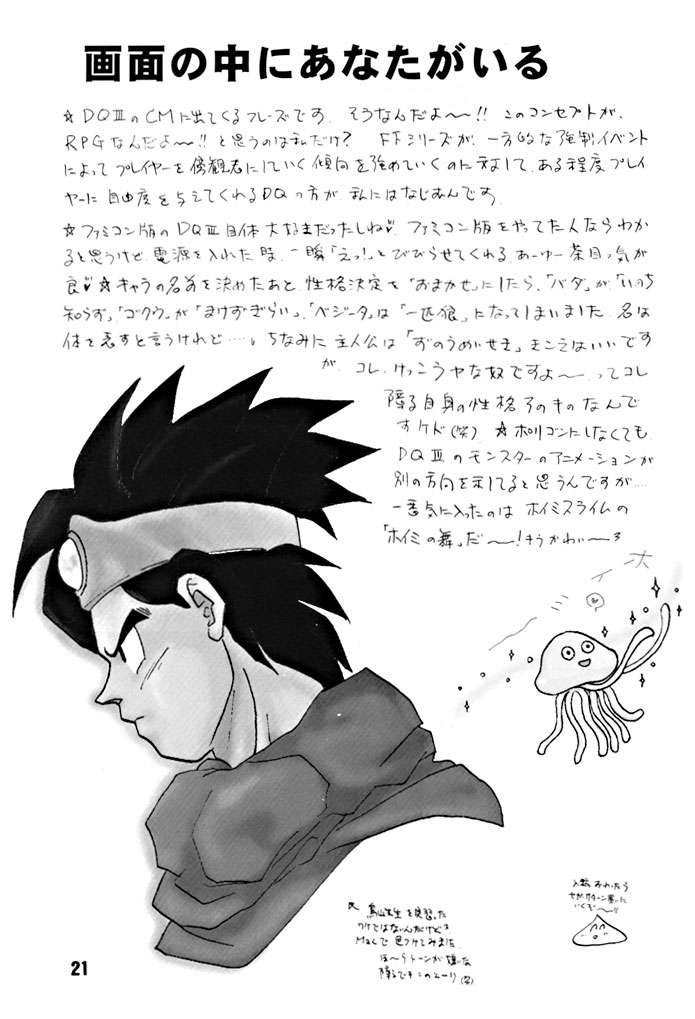 画面の中にあなたがいる
☆DQⅢのCMに出てくるフレーズです。そうなんだよ〜!! このコンセプトが、
RPGなんだよ〜!! と思うのは私だけ? FFシリーズが、一方的な強制イベント
によってプレイヤーを傍観者にしていく傾向を強めていくのに対して、ある程度プレイ
ヤーに自由度を与えてくれるDQの方が、私にはなじむんです。
☆ファミコン版のDQⅢ自体大好きだったしね♡ ファミコン版をやってた人ならわか
ると思うけど、電源を入れた時、一瞬「えっ!」とびびらせてくれる、あーゆー茶目っ気が
良♡ ☆キャラの名前を決めたあと、性格決定を「おまかせ」にしたら、「バダ」が「いのち
知らず」、「ゴクウ」が「まけずぎらい」、「ベジータ」は「一匹狼」になってしまいました。名は
体を表すと言うけれど……。ちなみに主人公は「ずのうめいせき」。きこえはいいです
が、コレ、けっこうヤな奴ですよ〜…ってコレ
障る自身の性格そのものなんで
すケド(笑) ☆ポリゴンにしなくても、
DQⅢのモンスターのアニメーションが
別の方向を示してると思うんですが……
一番気に入ったのはホイミスライムの
「ホイミの舞」だ〜!
ホイミ
☆鳥山先生を
ワケではないんだけど
Macで
トーンが
障るです
(笑)
入稿おわったら
21